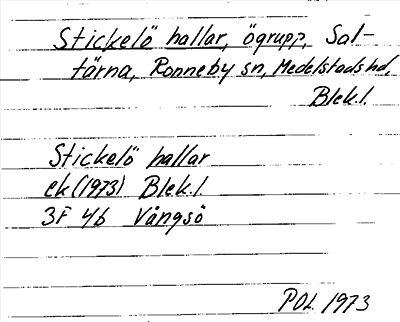 Stickelö hallar, ögrupp, Sal-
tärna, Ronneby sn, Medelstads hd,
Blek.l.
Stickelö hallar
ek (1973) Blek.l.
3F 4b Vångsö
POL 1973